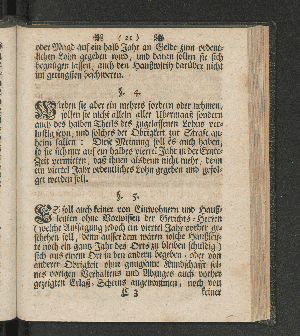 ( 21 )
oder Magd auf ein halb Jahr an Gelde zum ordent-
lichen Lohn gegeben wird, und daran sollen sie sich
begnügen lassen, auch den Haußwirth darüber nicht
im geringsten beschweren.
§. 4.
Würden sie aber ein mehres fordern oder nehmen,
sollen sie nicht allein aller Ubermaaß sondern
auch des halben Theils des zugelassenen Lohns ver-
lustig seyn, und solches der Obrigkeit zur Straffe an-
heim fallen: Diese Meynung soll es auch haben,
so sie sich nur auf ein halbes viertel Jahr in der Ernd-
Zeit vermieten, daß ihnen alsdenn nicht mehr, denn
ein viertel Jahr ordentliches Lohn gegeben und gefol-
get werden soll.
§. 5.
ES soll auch keiner von Einwohnern und Hauß-
leuten ohne Vorwissen der Gerichts-Herren
(welche Aufsagung jedoch ein viertel Jahr vorher ge-
schehen soll, denn ausser dem wären solche Haußleu-
te noch ein gantz Jahr des Orts zu bleiben schuldig)
sich aus einem Ort in den andern begeben, oder von
anderer Obrigkeit ohne gnugsame Kundschafft sei-
nes vorigen Verhaltens und Abzuges auch vorher
gezeigten Erlaß-Scheins angenommen, noch von
C 3 keiner